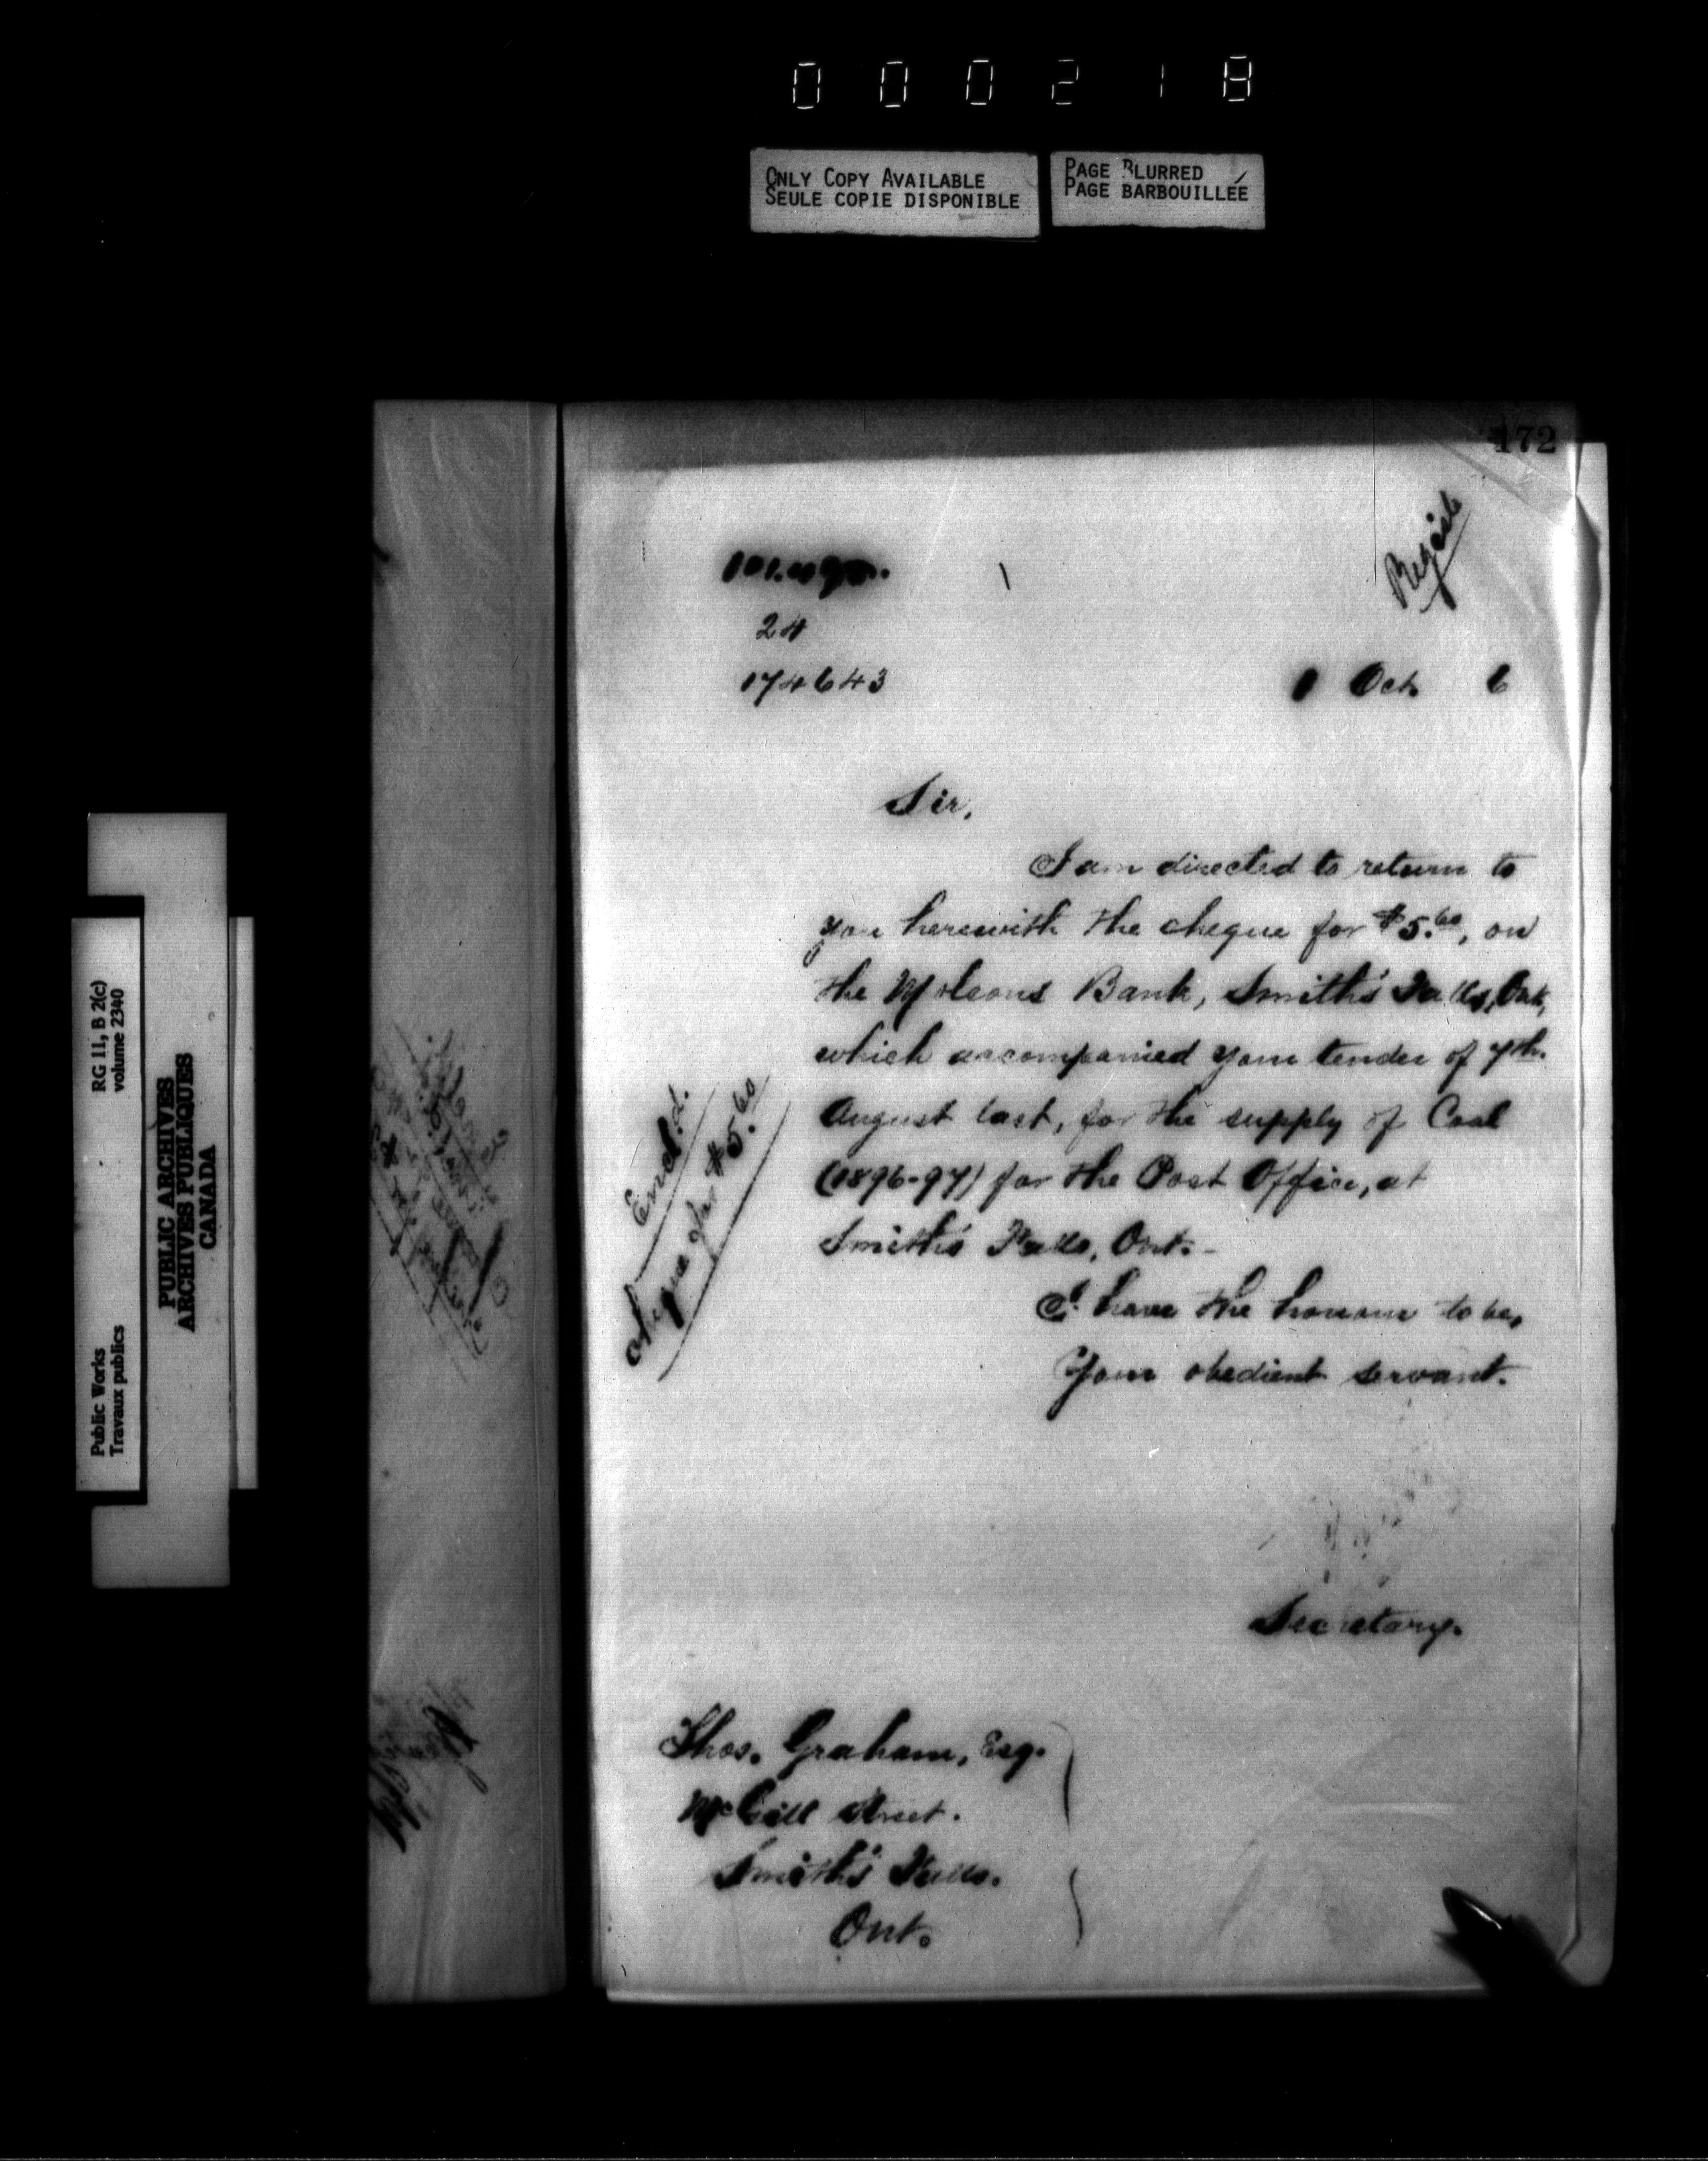 000218
ONLY COPY AVAILABLE
SEULE COPIE DISPONIBLE
PAGE BLURRED
PAGE BARBOUILLÉE
172
24
174643
1 Oct. 6
Sir,
I am directed to return to
you herewith the cheque for $5.60, on
the Molsons Bank, Smith's Falls, Ont,
which accompanied your tender of 7th.
August last, for the supply of Coal
(1896-97) for the Post Office, at
Smith's Falls, Ont. -
I have the honour to be,
Your obedient servant.
Encl.d.
cheque for $5.60
Secretary.
Thos. Graham, Esq.
McGill Street.
Smith's Falls.
Ont.
RG 11, B 2(c)
volume 2340
Public Works
Travaux publics
PUBLIC ARCHIVES
ARCHIVES PUBLIQUES
CANADA